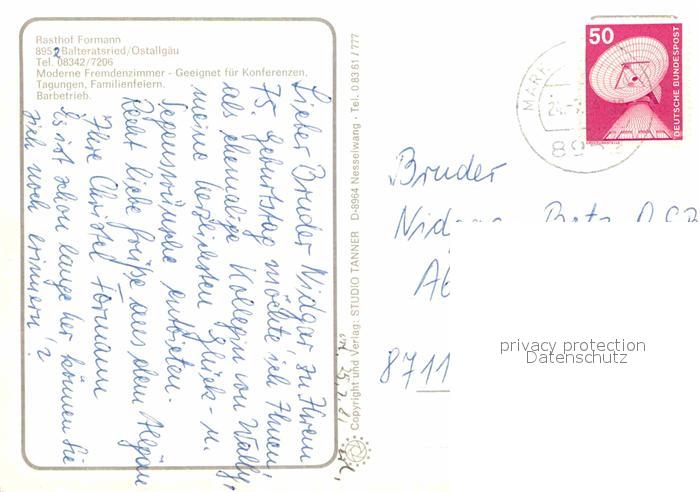 Rasthof Formann
8952 Balteratsried/Ostallgäu
Tel. 08342/7206
Moderne Fremdenzimmer - Geeignet für Konferenzen,
Tagungen, Familienfeiern.
Barbetrieb.
Lieber Bruder Nidgar zu Ihrem
75. Geburtstag möchte ich Ihnen,
als ehemalige Kollegin von Wally,
meine herzlichsten Glück- u.
Segenswünsche entbieten.
Recht liebe Grüße aus dem Allgäu
Ihre Christel Formann
Es ist schon lange her können Sie
sich noch erinnern?
Copyright und Verlag: STUDIO TANNER D-8964 Nesselwang · Tel. 0 83 61 / 777
50
DEUTSCHE BUNDESPOST
MARK
89
Bruder
8711
privacy protection
Datenschutz